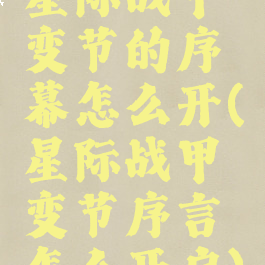 星际战甲
变节的序
幕怎么开(
星际战甲
变节序言
怎么开启)